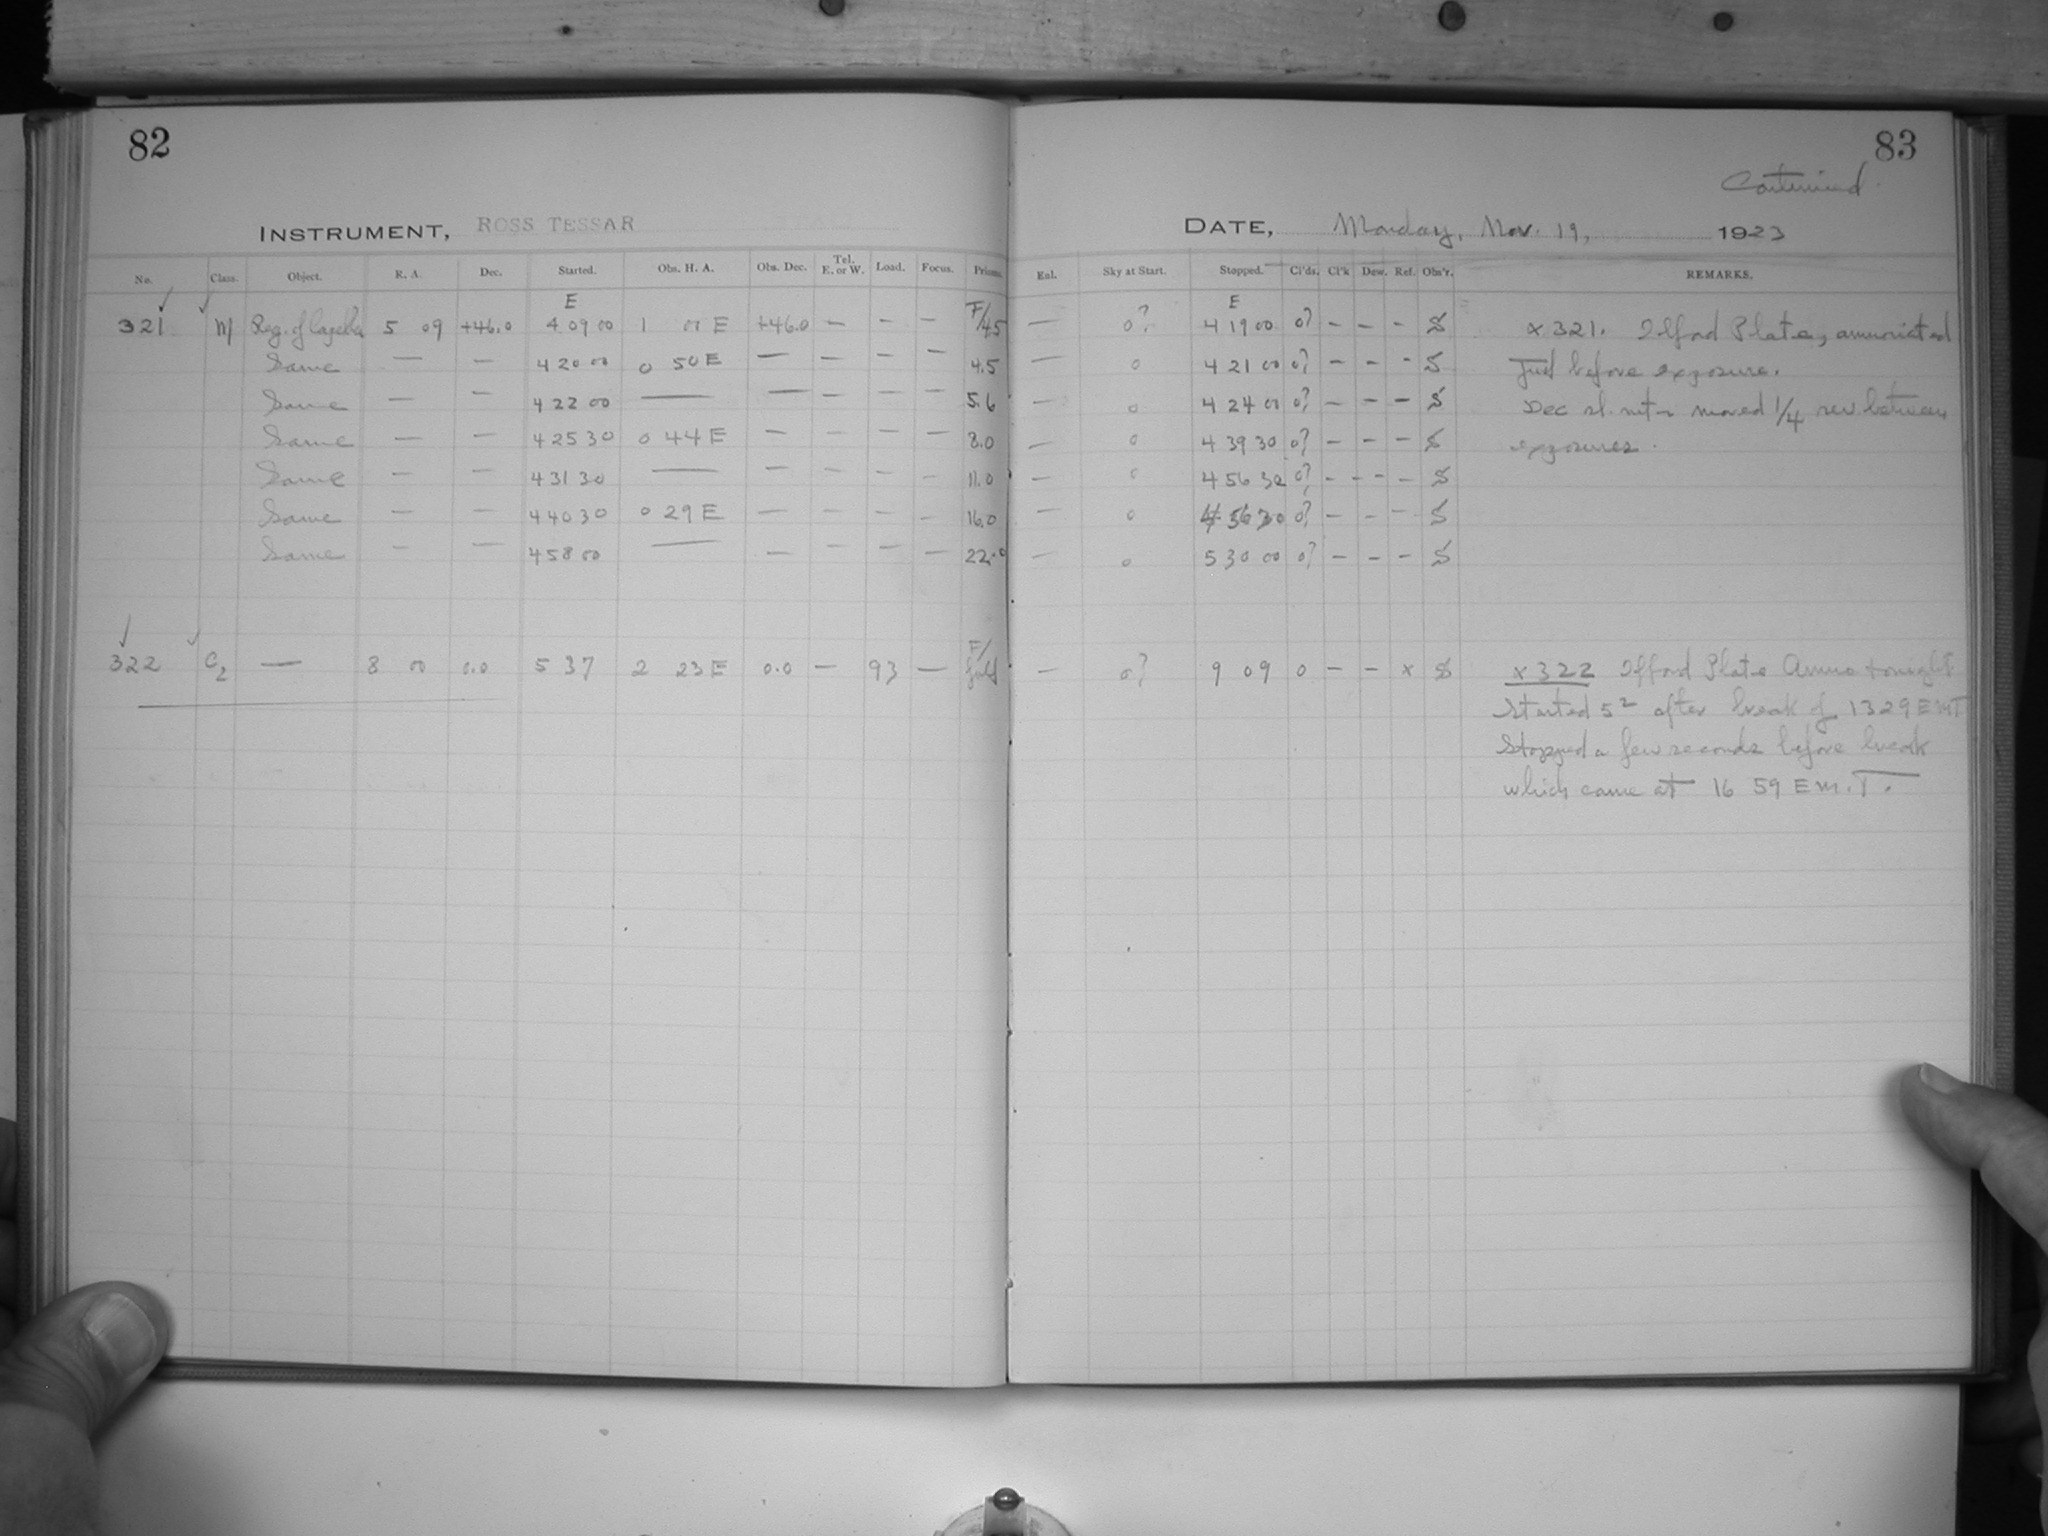 82
INSTRUMENT, ROSS TESSAR
No. Class. Object. R. A. Dec. Started. Obs. H. A. Obs. Dec. Tel. E. or W. Load. Focus. Prisms.
E
321 M Reg. of Capella 5 09 +46.0 4 09 00 1 01 E +46.0 — — — F/4.5
Same — — 4 20 00 0 50 E — — — — 4.5
Same — — 4 22 00 — — — — — 5.6
Same — — 4 25 30 0 44 E — — — — 8.0
Same — — 4 31 30 — — — — — 11.0
Same — — 4 40 30 0 29 E — — — — 16.0
Same — — 4 58 00 — — — — — 22.0
322 C2 — 8 00 0.0 5 37 2 23 E 0.0 — 93 — F/ full
83
Continued
DATE, Monday, Nov. 19, 1923
Enl. Sky at Start. Stopped. Cl'ds. Cl'k Dew. Ref. Obs'r. REMARKS.
E
— 0? 4 19 00 0? — — — S x 321. Ilford Plate, ammoniated
— 0 4 21 00 0? — — — S Just before exposure.
— 0 4 24 00 0? — — — S Dec sl. mtn moved 1/4 rev. between
— 0 4 39 30 0? — — — S exposures.
— 0 4 56 30 0? — — — S
— 0 4 56 30 0? — — — S
— 0 5 30 00 0? — — — S
— 0? 9 09 0 — — x S x 322 Ilford Plate Ammo tonight
Started 5 after break of 1329 EMT
Stopped a few seconds before break
which came at 16 59 E M.T.